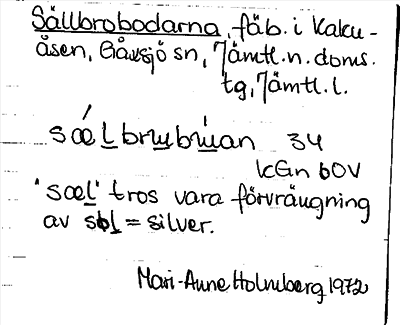 Sällbrobodarna, fäb. i Kaku-
åsen, Gåxsjö sn, Jämtl. n. doms.
tg, Jämtl. l.
sælbrɯbɯan 34
kGn bOV
"sæl" tros vara förvrängning
av sɵl = silver.
Mari-Anne Holmberg 1972